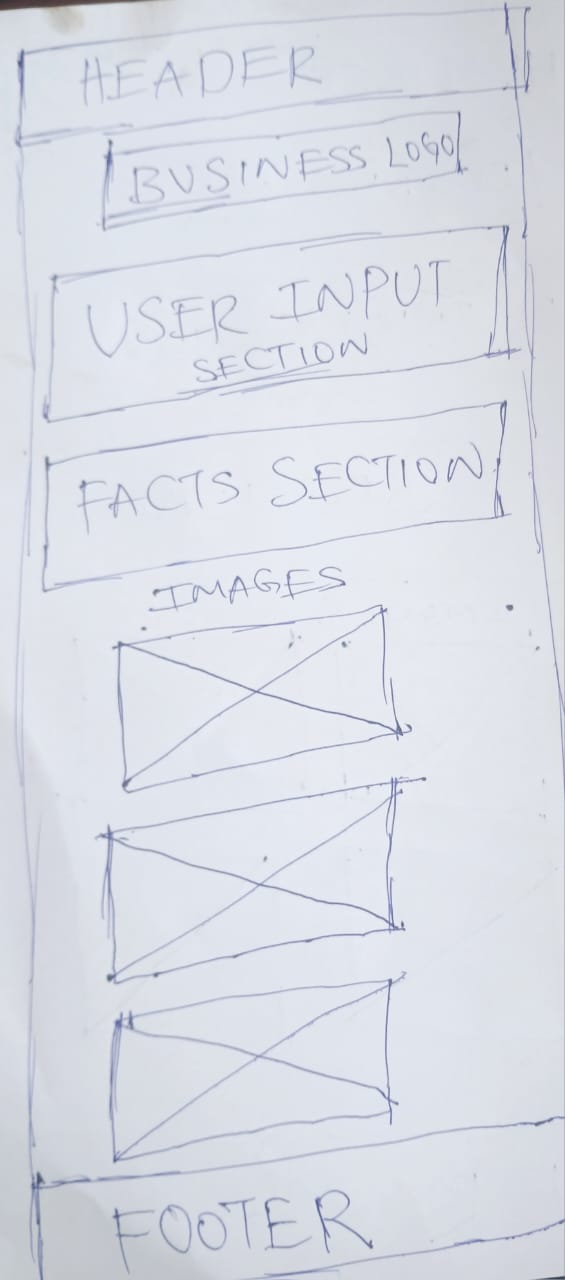 HEADER
BUSINESS LOGO
USER INPUT
SECTION
FACTS SECTION
IMAGES
FOOTER